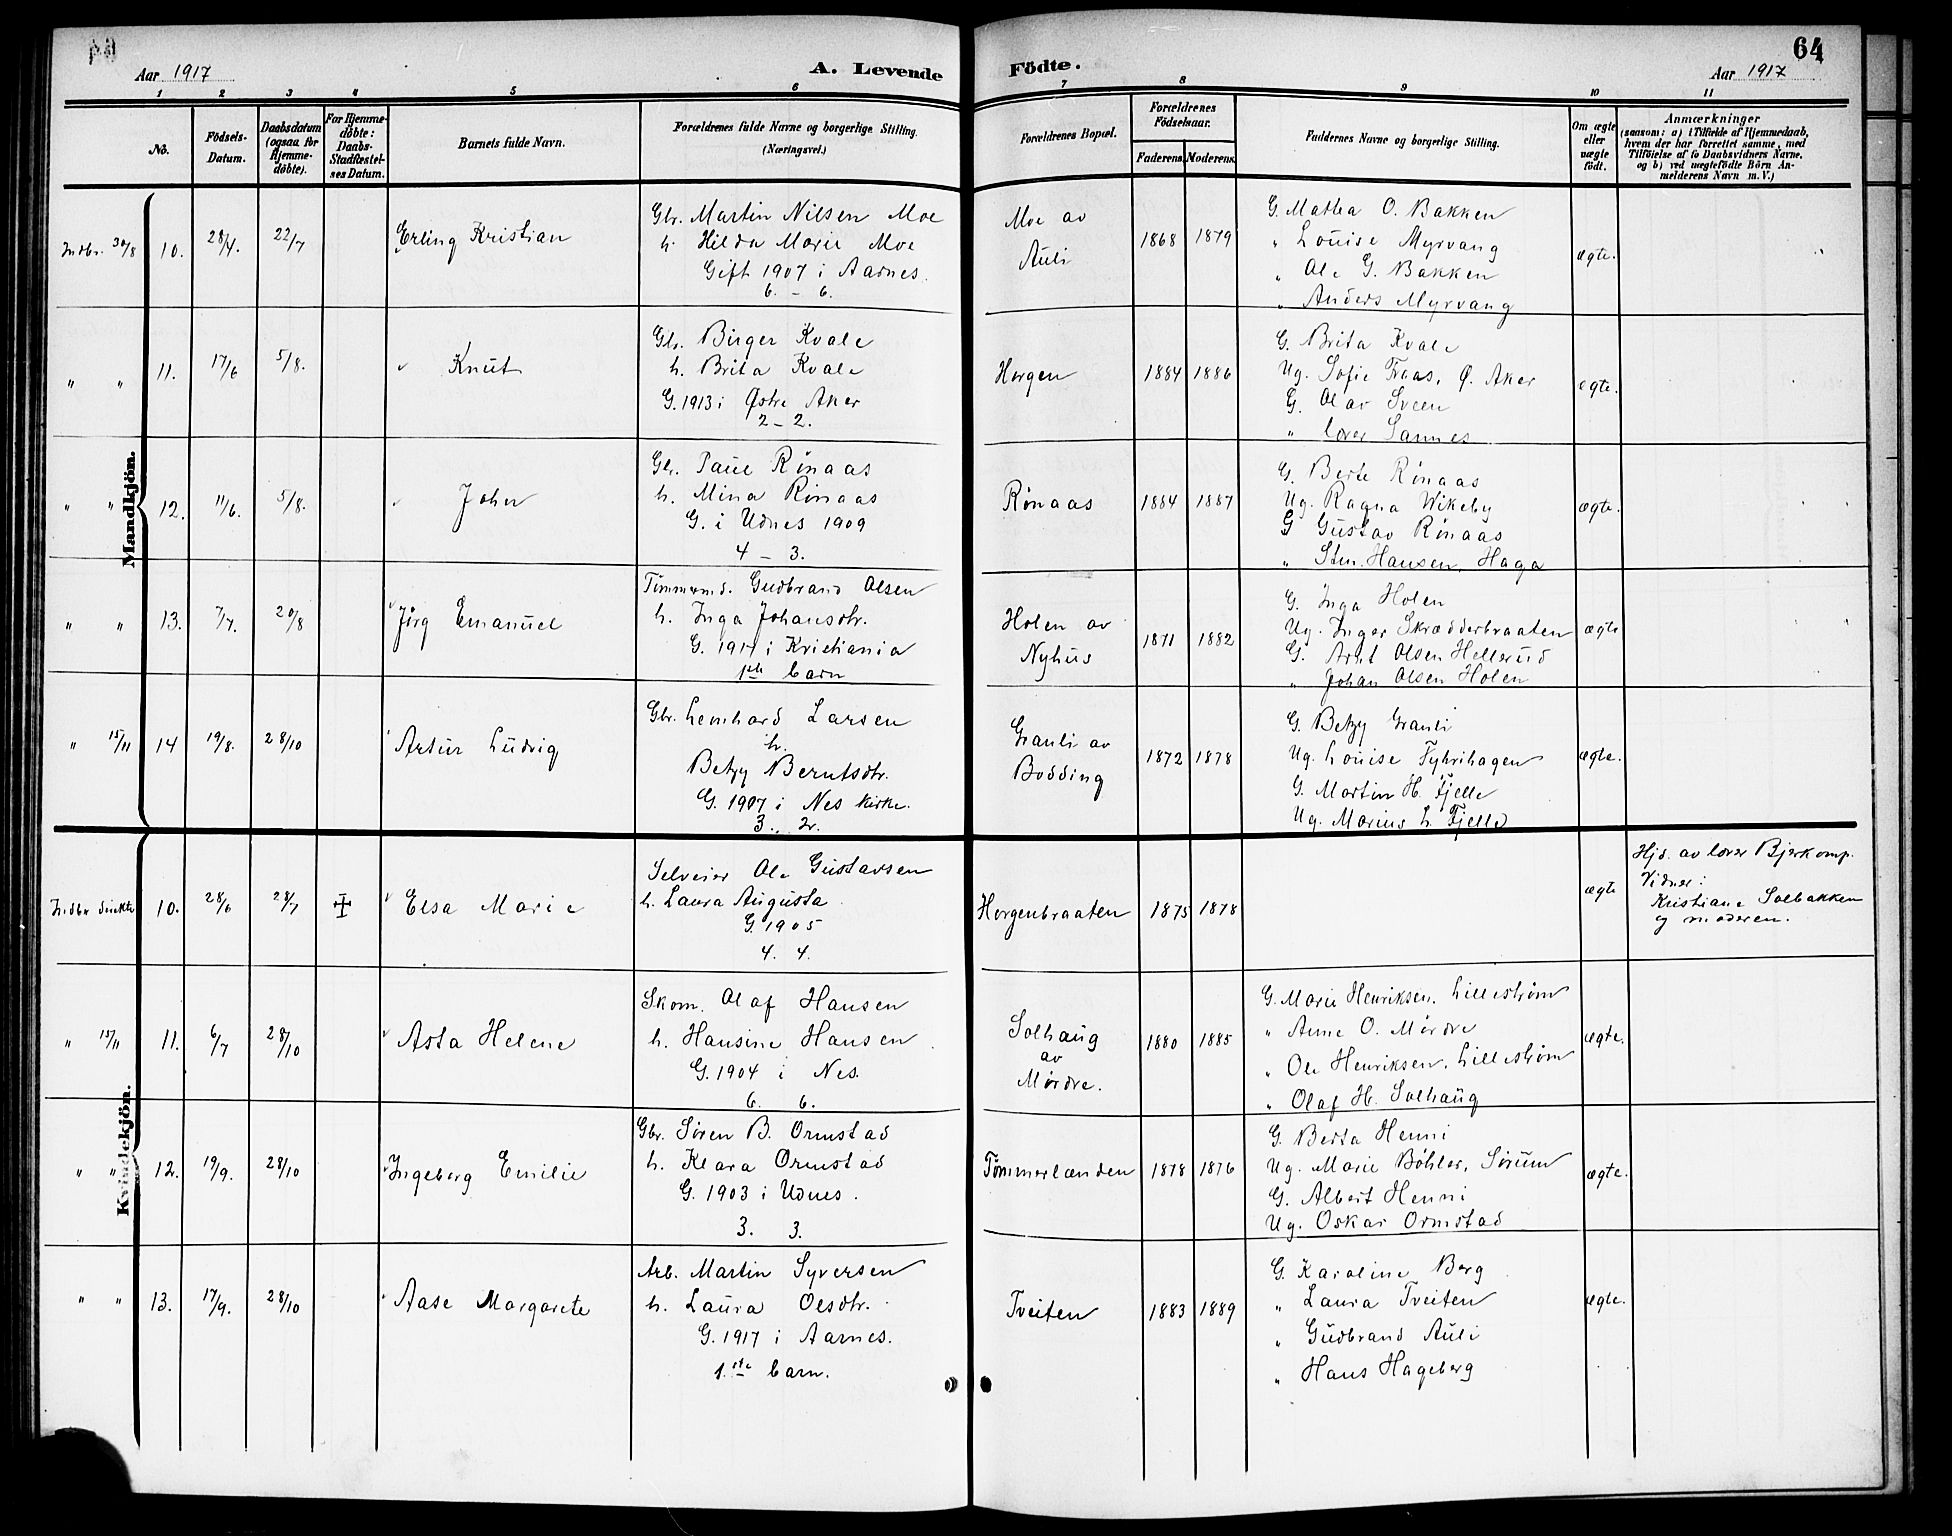 64
Aar 1917
A. Levende Födte.
Aar 1917
1 2 3 4 5 6 7 8 9 10 11
No.
Födsels-Datum.
Daabsdatum (ogsaa for Hjemme-døbte).
For Hjemme-døbte: Daabs-Stadfæstel-ses Datum.
Barnets fulde Navn.
Forældrenes fulde Navne og borgerlige Stilling.
(Næringsvei.)
Forældrenes Bopæl.
Forældrenes Födselsaar.
Faderens. Moderens.
Faddernes Navne og borgerlige Stilling.
Om ægte eller uægte født.
Anmærkninger
(saasom: a) i Tilfælde af Hjemmedaab, hvem der har forrettet samme, med Tilföielse af to Daabsvidners Navne, og b) ved uegtefödte Börn An-melderens Navn m. V.)
Mandkjön.
Indbr. 30/8 10. 28/4. 22/7 Erling Kristian
Gbr. Martin Nilsen Moe
h. Hilda Marie Moe
Gift 1907 i Aarnes.
6. – 6.
Moe av
Auli
1868 1879
G. Mathea O. Bakken
" Louise Myrvang
" Ole G. Bakken
" Anders Myrvang
ægte.
" " 11. 17/6 5/8. Knut
Gbr. Birger Kvale
h. Brita Kvale
G. 1913 i Østre Aker
2 – 2.
Horgen
1884 1886
G. Brita Kvale
Ug. Sofie Traas, Ø. Aker
G. Olav Sveen
" lærer Sannes
ægte.
" " 12. 11/6. 5/8. Johan
Gbr. Paul Rønaas
h. Mina Rønaas
G. i Udnes 1909
4 – 3.
Rønaas
1884 1887
G. Berte Rønaas
Ug. Ragna Wikeby
G Gustav Rønaas
" Sten. Hansen Haga
ægte.
" " 13. 7/7. 20/8 Jørg Emanuel
Tømmermd. Gudbrand Olsen
h. Inga Johansdtr.
G. 1917 i Kristiania
1ste barn
Holen av
Nyhus
1871 1882
G. Inga Holen
Ug. Inger Skrædderbraaten
G. Arnt Olsen Hellerud
" Johan Olsen Holen
ægte
" 15/11 14 19/8. 28/10 Artur Ludvig
Gbr. Lenhard Larsen
h.
Betzy Berntsdtr.
G. 1907 i Nes kirke.
3. 2.
Granli av
Bodding
1872 1878
G. Betzy Granli
Ug. Louise Fyhrihagen
G. Martin H. Fjelle
Ug. Marius L. Fjelle
ægte.
Kvindekjön.
Indbr. direkte 10. 28/6 28/7 Elsa Marie
Selveier Ole Gustavsen
h. Laura Augusta
G. 1905
4. 4.
Horgenbraaten
1875 1878
ægte
Hjd. av lærer Bjerkomp.
Vidner:
Kristiane Solbakken
og moderen.
" 15/11 11. 6/7 28/10 Asta Helene
Skom. Olaf Hansen
h. Hansine Hansen
G. 1904 i Nes.
6. 6.
Solhaug
av
Mørdre.
1880 1885
G. Marie Henriksen, Lillestrøm
" Anne O. Mørdre
" Ole Henriksen, Lillestrøm
" Olaf H. Solhaug
ægte.
" " 12. 19/9. 28/10 Ingeborg Emilie
Gbr. Søren B. Ormstad
h. Klara Ormstad
G. 1903 i Udnes.
3. 3.
Tømmerlænden
1878 1876
G. Berta Henni
Ug. Marie Bøhler, Sørum
G. Albert Henni
Ug. Oskar Ormstad
ægte.
" " 13. 17/9. 28/10 Aase Margarete
Arb. Martin Syversen
h. Laura Olsdtr.
G. 1917 i Aarnes.
1ste barn.
Tveiten
1883 1889
G. Karoline Berg
" Laura Tveiten
" Gudbrand Auli
" Hans Hageberg
ægte.